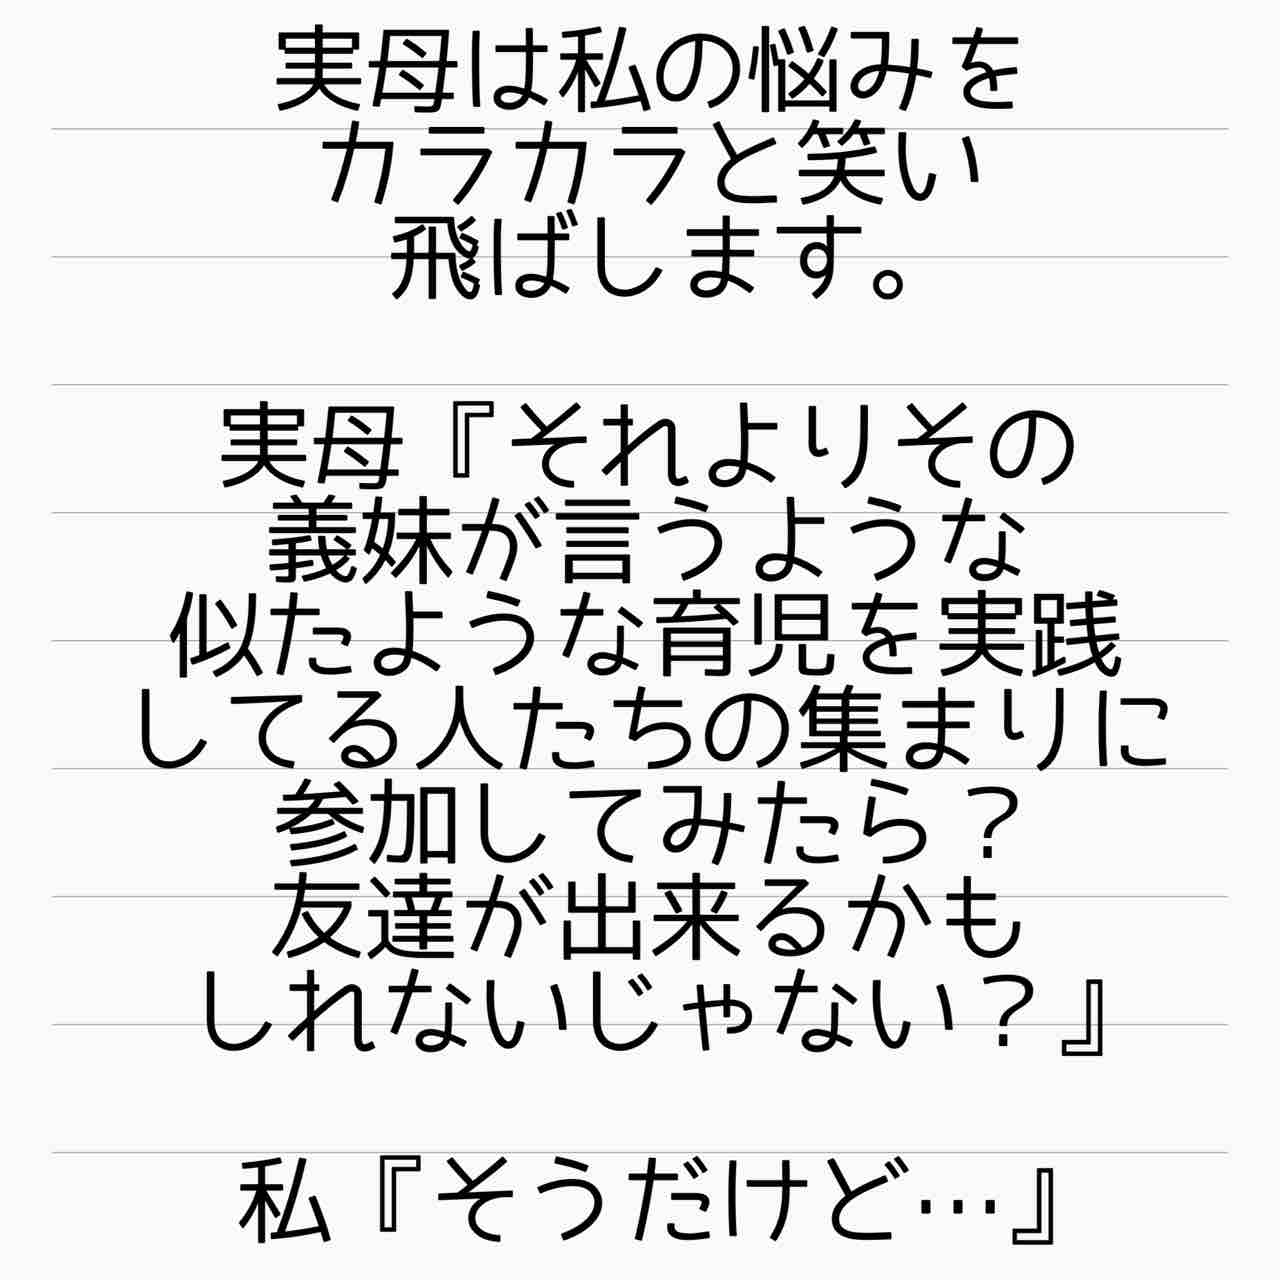 実母は私の悩みを
カラカラと笑い
飛ばします。
実母『それよりその
義妹が言うような
似たような育児を実践
してる人たちの集まりに
参加してみたら？
友達が出来るかも
しれないじゃない？』
私『そうだけど…』